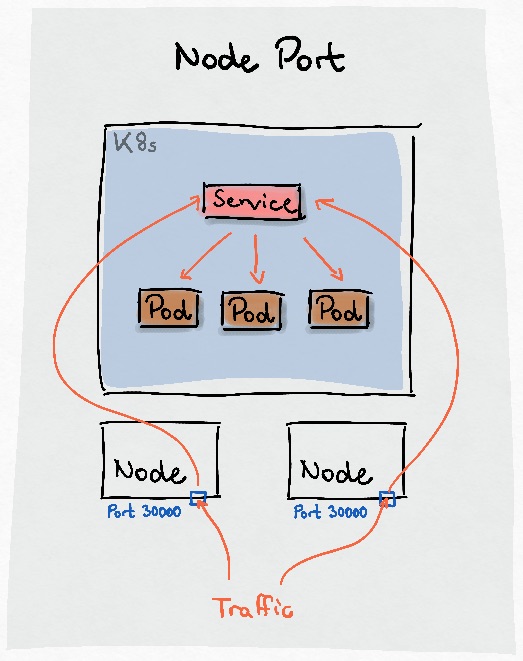 Node Port
K8s
Service
Pod Pod Pod
Node Node
Port 30000 Port 30000
Traffic